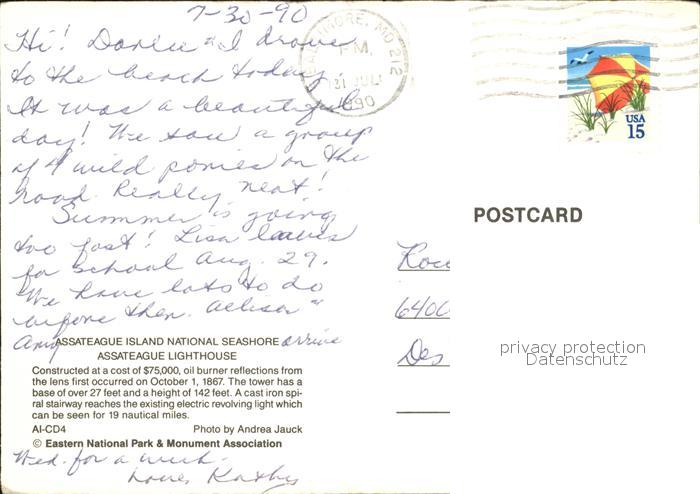 7-30-90
Hi! Darlee & I drove
to the beach today
It was a beautiful
day! We saw a group
of 4 wild ponies on the
road. Really neat!
Summer is going
too fast! Lisa leaves
for school Aug. 29.
We have lots to do
before then. Allison &
Amy arrive
ASSATEAGUE ISLAND NATIONAL SEASHORE
ASSATEAGUE LIGHTHOUSE
Constructed at a cost of $75,000, oil burner reflections from
the lens first occurred on October 1, 1867. The tower has a
base of over 27 feet and a height of 142 feet. A cast iron spi-
ral stairway reaches the existing electric revolving light which
can be seen for 19 nautical miles.
AI-CD4 Photo by Andrea Jauck
© Eastern National Park & Monument Association
Wed. for a week.
Love, Kathy
BALTIMORE, MD 212
PM
31 JUL
1990
USA
15
POSTCARD
6400
Des
privacy protection
Datenschutz